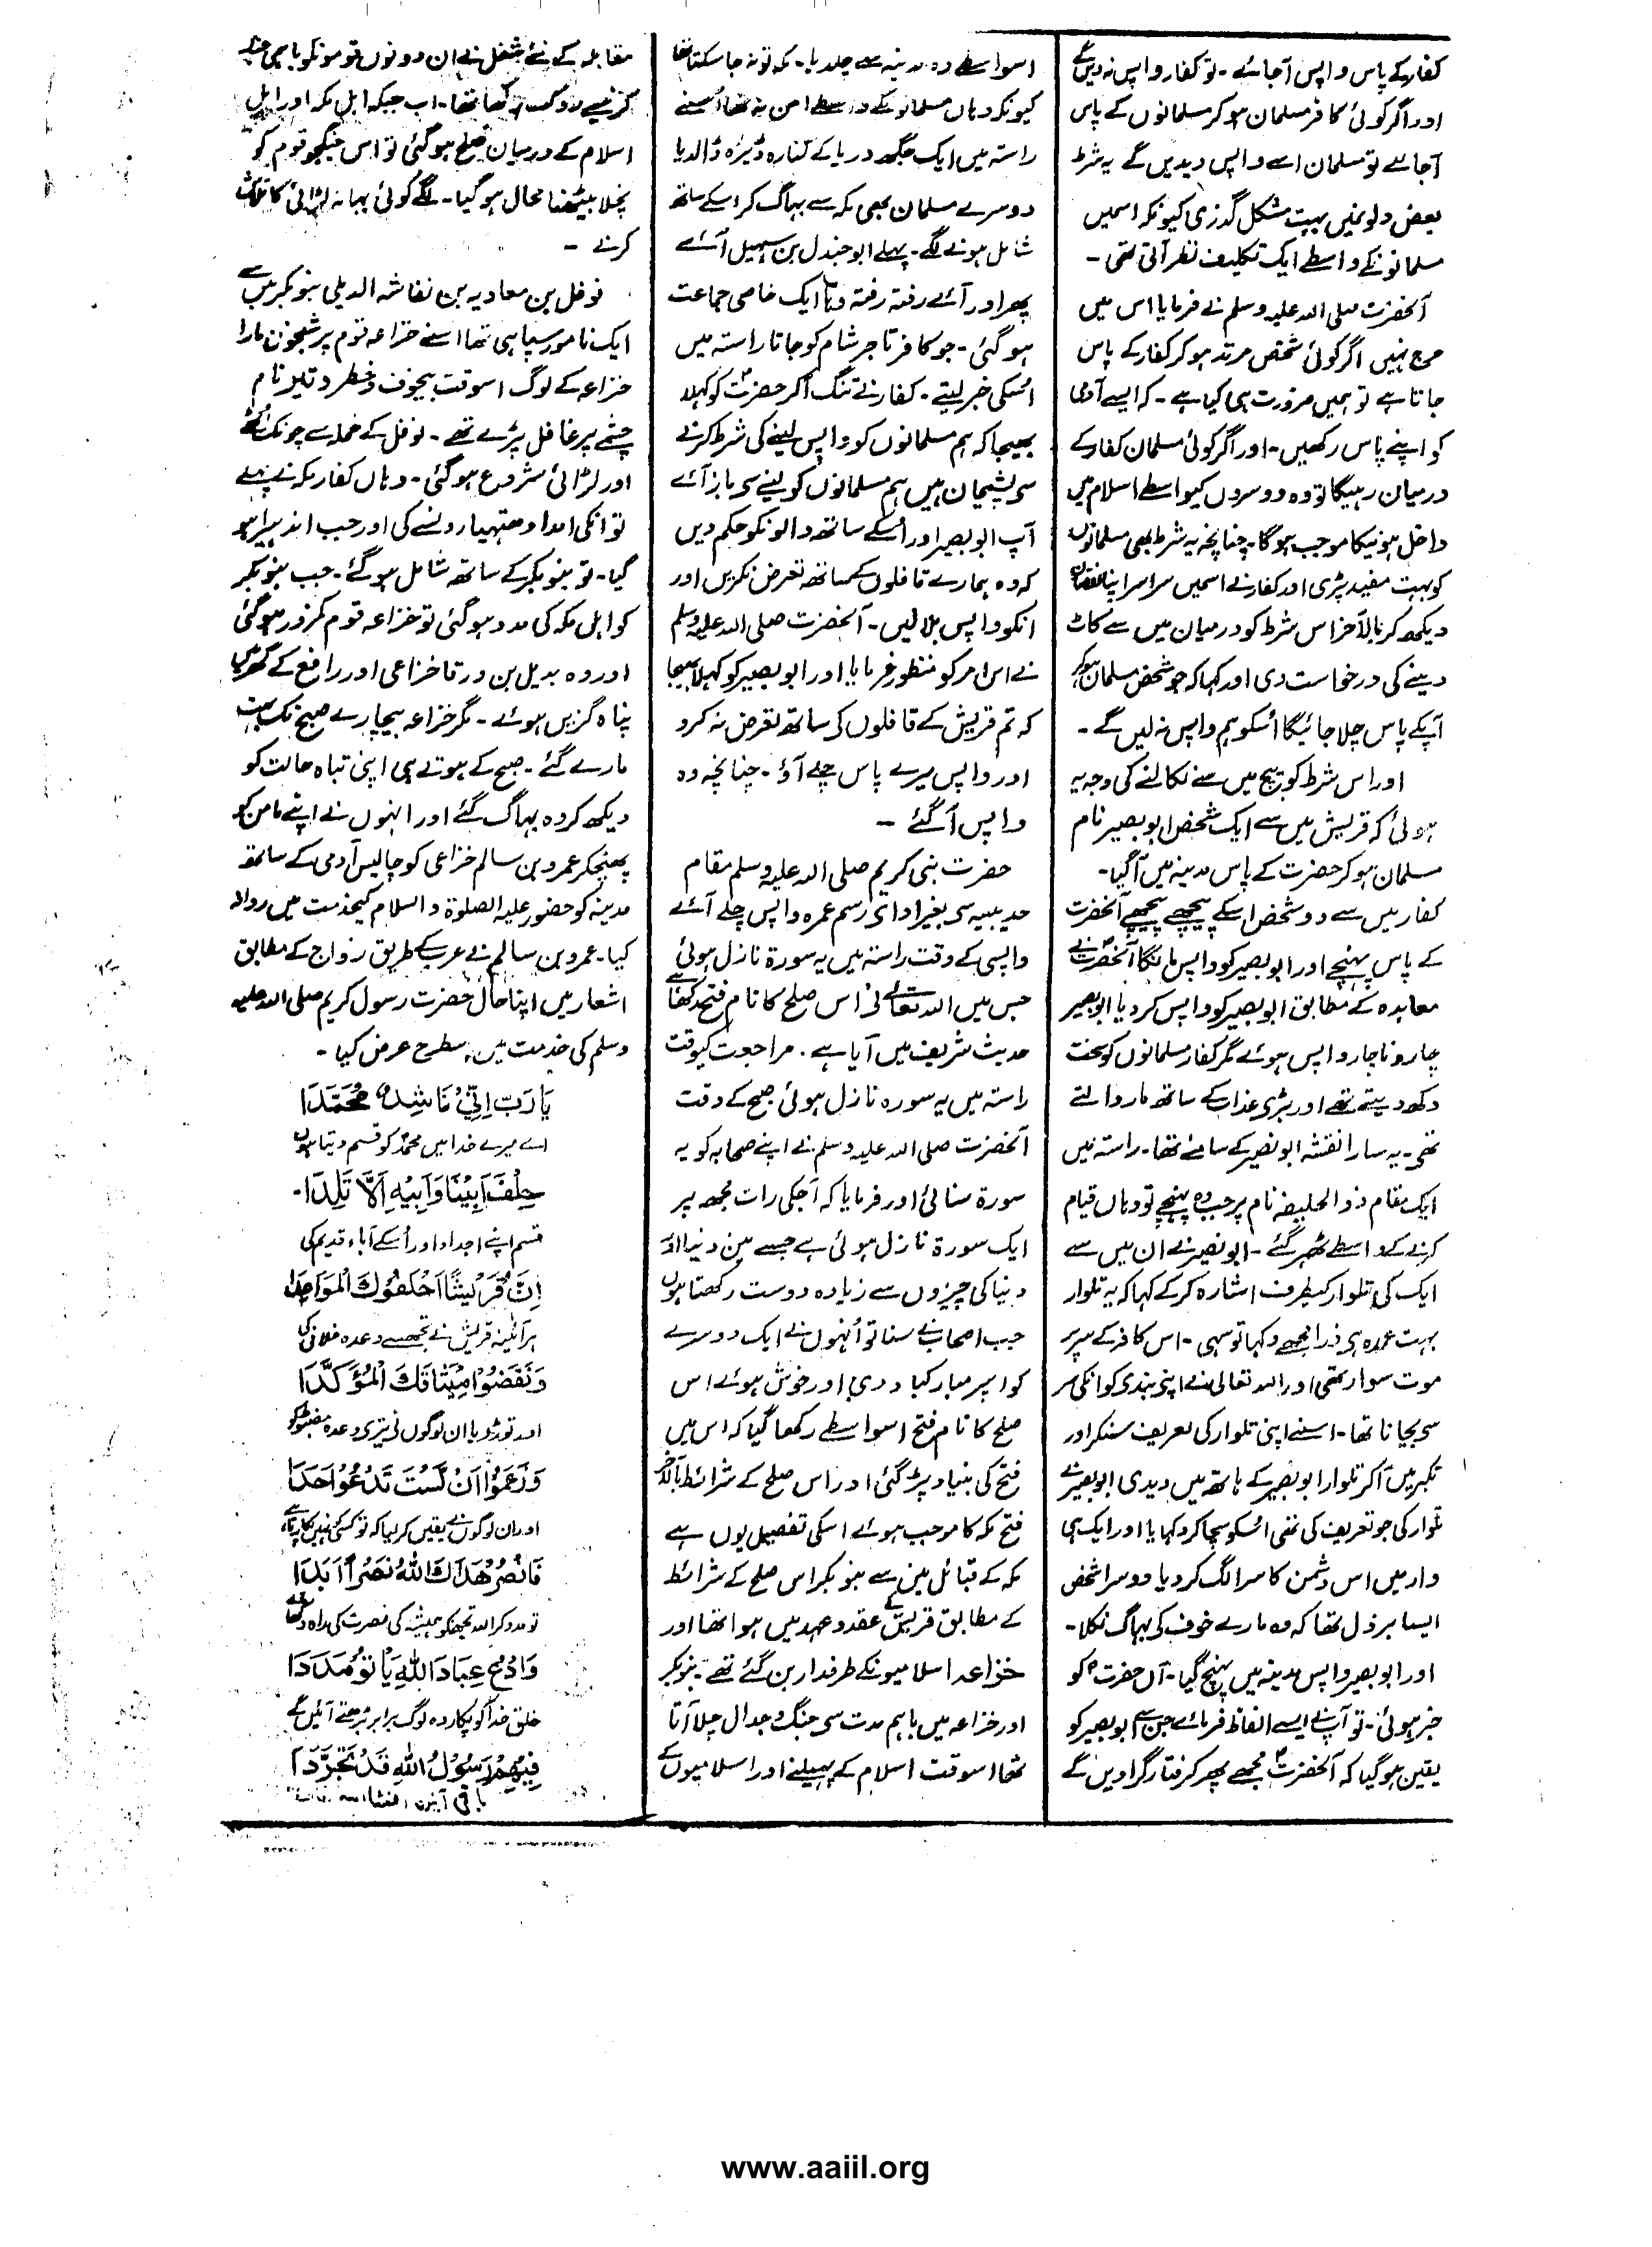 کفار کے پاس واپس آجائے ۔ تو کفار واپس نہ دیں گے
اور اگر کوئی کافر مسلمان ہو کر مسلمانوں کے پاس
آجائے تو مسلمان اسے واپس دیدیں گے یہ شرط
بعض دلونمیں بہت مشکل گذری کیونکہ اسمیں
مسلمانونکے واسطے ایک تکلیف نظر آتی تھی ۔
آنحضرت صلی اللہ علیہ وسلم نے فرمایا اس میں
حرج نہیں اگر کوئی شخص مرتد ہو کر کفار کے پاس
جاتا ہے تو ہمیں ضرورت ہی کیا ہے ۔ کہ ایسے آدمی
کو اپنے پاس رکھیں ۔ اور اگر کوئی مسلمان کفار کے
درمیان رہیگا تو وہ دوسروں کیواسطے اسلام میں
داخل ہونیکا موجب ہوگا ۔ چنانچہ یہ شرط بھی مسلمانوں
کو بہت مفید پڑی اور کفار نے اسمیں سراسر اپنا نقصان
دیکھ کر بالآخر اس شرط کو درمیان میں سے کاٹ
دینے کی درخواست دی اور کہا کہ جو شخص مسلمان ہو کر
آپکے پاس چلا جائیگا اُسکو ہم واپس نہ لیں گے ۔
اور اس شرط کو بیچ میں سے نکالنے کی وجہ یہ
ہوئی کہ قریش میں سے ایک شخص ابو بصیر نام
مسلمان ہو کر حضرت کے پاس مدینہ میں آگیا ۔
کفار میں سے دو شخص اسکے پیچھے پیچھے آنحضرت
کے پاس پہنچے اور ابو بصیر کو واپس مانگا آنحضرتؐ نے
معاہدہ کے مطابق ابو بصیر کو واپس کر دیا ابو بصیر
چار و ناچار واپس ہوئے مگر کفار مسلمانوں کو سخت
دکھ دیتے تھے اور بڑی عذاب کے ساتھ مار والتے
تھی ۔ یہ سارا نقشہ ابو بصیر کے سامنے تھا ۔ راستہ میں
ایک مقام ذوالحلیفہ نام پر جب وہ پہنچے تو وہاں قیام
کرنے کے واسطے ٹھہر گئے ۔ ابو بصیر نے ان میں سے
ایک کی تلوار کیطرف اشارہ کر کے کہا کہ یہ تلوار
بہت عمدہ ہی ذرا مجھے دکہا تو سہی ۔ اس کافر کے سر پر
موت سوار تھی اور اللہ تعالی نے اپنی بندی کو انکی سر
سی بچانا تھا ۔ اسنے اپنی تلوار کی تعریف سنکر اور
تکبر میں آکر تلوار ابو بصیر کے ہاتھ میں دیدی ابو بصیر نے
تلوار کی جو تعریف کی تھی اُسکو سچا کر دکہایا اور ایک ہی
وار میں اس دشمن کا سر الگ کر دیا دوسرا شخص
ایسا بزدل تھا کہ وہ مارے خوف کی بہاگ نکلا ۔
اور ابو بصیر واپس مدینہ میں پہنچ گیا ۔ آں حضرتؐ کو
خبر ہوئی ۔ تو آپ نے ایسے الفاظ فرمائے جن سے ابو بصیر کو
یقین ہو گیا کہ آنحضرتؐ مجھے پھر گرفتار کرا دیں گے
اسواسطے وہ مدینہ سے چلدیا ۔ مکہ تو نہ جا سکتا تھا
کیونکہ وہاں مسلمانونکے واسطے امن نہ تھا اُسنے
راستہ میں ایک جگھ دریا کے کنارہ ڈیرہ ڈالدیا
دوسرے مسلمان بھی مکہ سے بہاگ کر اسکے ساتھ
شامل ہونے لگے ۔ پہلے ابو جندل بن سہیل آئے
پھر اور آئے رفتہ رفتہ وہاں ایک خاصی جماعت
ہوگئی ۔ جو کافر تاجر شام کو جاتا راستہ میں
اُسکی خبر لیتے ۔ کفار نے تنگ آکر حضرتؐ کو کہلا
بھیجا کہ ہم مسلمانوں کو واپس لینے کی شرط کرنے
سی پشیمان ہیں ہم مسلمانوں کو لینے سی باز آئے
آپ ابو بصیر اور اُسکے ساتھ والونکو حکم دیں
کہ وہ ہمارے قافلوں کے ساتھ تعرض نکریں اور
انکو واپس بلالیں ۔ آنحضرت صلی اللہ علیہ وسلم
نے اس امر کو منظور فرمایا اور ابو بصیر کو کہلا بھیجا
کہ تم قریش کے قافلوں کی ساتھ تعرض نہ کرو
اور واپس میرے پاس چلے آؤ ۔ چنانچہ وہ
واپس آگئے ۔
حضرت نبی کریم صلی اللہ علیہ وسلم مقام
حدیبیہ سی بغیر ادائے رسم عمرہ واپس چلے آئے
واپسی کے وقت راستہ میں یہ سورۃ نازل ہوئی
جس میں اللہ تعالٰی نے اس صلح کا نام فتح رکھا ہے
حدیث شریف میں آیا ہے ۔ مراجعت کیوقت
راستہ میں یہ سورہ نازل ہوئی صبح کے وقت
آنحضرت صلی اللہ علیہ وسلم نے اپنے صحابہ کو یہ
سورۃ سنائی اور فرمایا کہ آجکی رات مجھ پر
ایک سورۃ نازل ہوئی ہے جسے مین دنیا اور
دنیا کی چیزوں سے زیادہ دوست رکھتا ہوں
جب اصحاب نے سنا تو اُنہوں نے ایک دوسرے
کو اسپر مبارکباد دی اور خوش ہوئے اس
صلح کا نام فتح اسواسطے رکھا گیا کہ اس میں
فتح کی بنیاد پڑ گئی اور اس صلح کے شرائط بالآخر
فتح مکہ کا موجب ہوئے اسکی تفصیل یوں ہے
مکہ کے قبائل مین سے بنو بکر اس صلح کے شرائط
کے مطابق قریش کے عقد و عہد میں ہوا تھا اور
خزاعہ اسلامیونکے طرفدار بن گئے تھے ۔ بنو بکر
اور خزاعہ میں باہم مدت سی جنگ و جدال چلا آتا
تھا اسوقت اسلام کے پھیلنے اور اسلامیوں کے
مقابلہ کے نئے شغل نے ان دونوں قومونکو باہمی جنگ
کرنیسے روک رکھا تھا ۔ اب جبکہ اہل مکہ اور اہل
اسلام کے درمیان صلح ہوگئی تو اس جنگجو قوم کو
نچلا بیٹھنا محال ہوگیا ۔ لگے کوئی بہانہ لڑائی کا تلاش
کرنے ۔
نوفل بن معاویہ بن نفاشہ الدیلی بنو بکر میں سے
ایک نامور سپاہی تھا اسنے خزاعہ قوم پر شبخون مارا
خزاعہ کے لوگ اسوقت بیخوف و خطر وتیر نام
چشمے پر غافل پڑے تھے ۔ نوفل کے حملہ سے چونک اٹھے
اور لڑائی شروع ہوگئی ۔ وہاں کفار مکہ نے پہلے
تو انکی امداد ہتہیار ونسے کی اور جب اندہیرا ہو
گیا ۔ تو بنو بکر کے ساتھ شامل ہو گئے ۔ جب بنو بکر
کو اہل مکہ کی مدد ہوگئی تو خزاعہ قوم کمزور ہوگئی
اور وہ بدیل بن ورقا خزاعی اور رافع کے گھر میں
پناہ گزیں ہوئے ۔ مگر خزاعہ بیچارے صبح تک بہت
مارے گئے ۔ صبح کے ہوتے ہی اپنی تباہ حالت کو
دیکھ کر وہ بہاگ گئے اور انہوں نے اپنے مامن کو
پھنچکر عمرو بن سالم خزاعی کو چالیس آدمی کے ساتھ
مدینہ کو حضور علیہ الصلوۃ والسلام کیخدمت میں روانہ
کیا ۔ عمرو بن سالم نے عرب کے طریق رواج کے مطابق
اشعار میں اپنا حال حضرت رسول کریم صلی اللہ علیہ
وسلم کی خدمت میں اسطرح عرض کیا ۔
يَا رَبِّ اِنِّيْ نَاشِدٌ مُحَمَّدَا
اے میرے خدا میں محمدؐ کو قسم دیتا ہوں
حِلْفَ اَبِيْنَا وَاَبِيْهِ اَلَّا تَلِدَا ۔
قسم اپنے اجداد اور اُسکے آباء قدیم کی
اِنَّ قُرَيْشًا اَخْلَفُوْكَ الْمَوْاعِدَا
ہر آئینہ قریش نے تجھسے وعدہ خلافی کی
وَنَقَضُوْا مِيْثَاقَكَ الْمُؤَكَّدَا
اور توڑ دیا ان لوگوں نے تیری وعدہ مضبوط کو
وَزَعَمُوْا اَنْ لَسْتَ تَدْعُوْا اَحَدَا
اور ان لوگوں نے یقین کر لیا کہ تو کسی کو نہیں پکارتا ہے
فَانْصُرْ هَدَاكَ اللهُ نَصْرًا اَبَدَا
تو مدد کر اللہ تجھکو ہمیشہ کی نصرت کی راہ دکھائے
وَادْعُ عِبَادَ اللهِ يَاْتُوْ مَدَدَا
خلق خدا کو پکار وہ لوگ برابر بڑھتے آئیں گے
فِيْهِمْ رَسُوْلُ اللهِ قَدْ تَجَرَّدَا
باقی آیندہ انشاء اللہ
www.aaiil.org